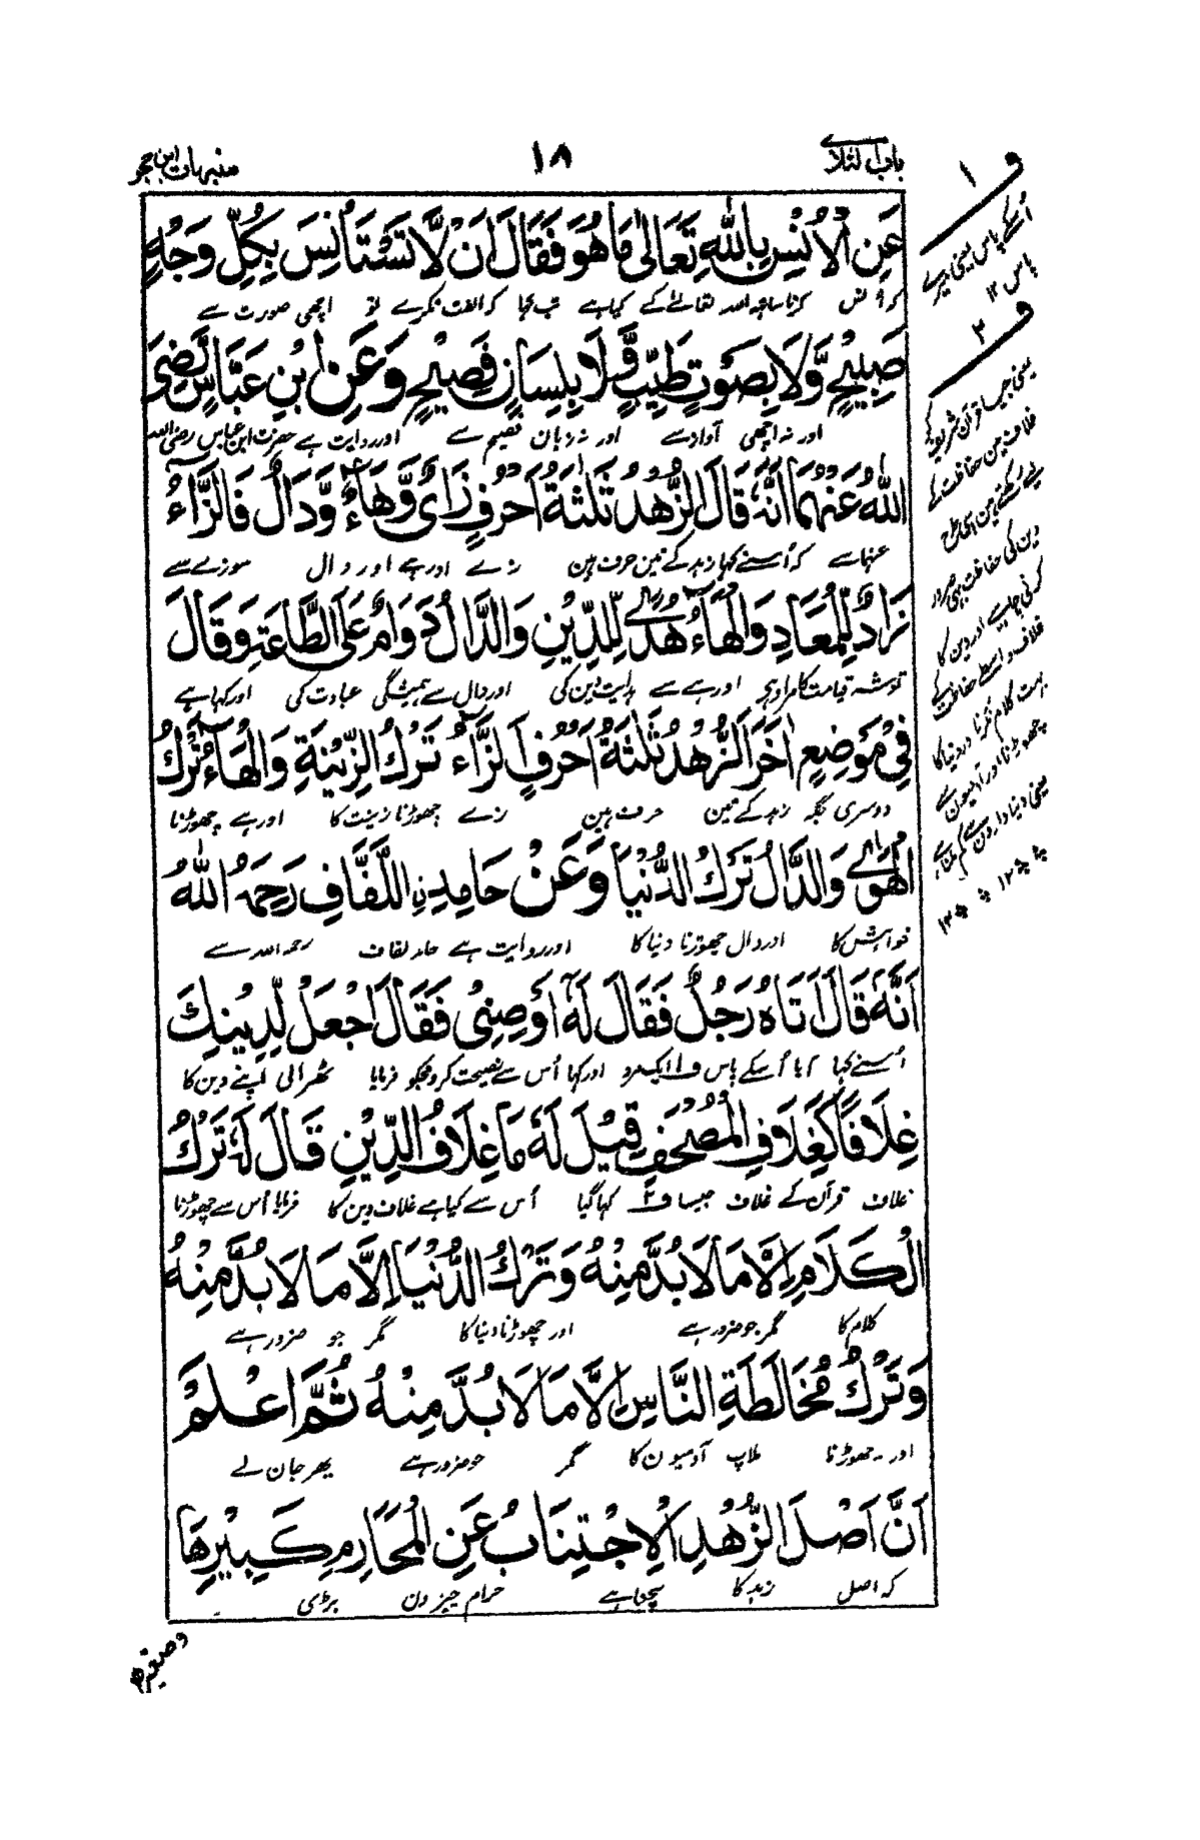 باب الثلاثے
١٨
منبہات ابن حجر
عَنِ الْاُنْسِ بِاللّٰهِ تَعَالٰى مَا هُوَ فَقَالَ اَنْ لَّا تَسْتَأْنِسَ بِكُلِّ وَجْهٍ
کہ انس کرنا ساتھ اللہ تعالےٰ کے کیا ہے تب کہا کہ الفت نکرے تو اچھی صورت سے
صَبِيْحٍ وَّلَا بِصَوْتٍ طَيِّبٍ وَّلَا بِلِسَانٍ فَصِيْحٍ وَعَنِ ابْنِ عَبَّاسٍ رَّضِيَ
اور نہ اچھی آواز سے اور نہ زبان فصیح سے اور روایت ہے حضرت ابن عباس رضی اللہ
اللّٰهُ عَنْهُمَا اَنَّهٗ قَالَ الزُّهْدُ ثَلٰثَةُ اَحْرُفٍ زَاءٌ وَّهَاءٌ وَّدَالٌ فَالزَّاءُ
عنہا سے کہ اُسنے کہا زہد کے تین حرف ہین زے اور ہے اور دال سو زے سے
زَادٌ لِّلْمَعَادِ وَالْهَاءُ هُدًى لِّلدِّيْنِ وَالدَّالُ دَوَامٌ عَلَى الطَّاعَةِ وَقَالَ
توشہ قیامت کا مراد ہے اور ہے سے ہدایت دین کی اور دال سے ہمیشگی عبادت کی اور کہا ہے
فِيْ مَوْضِعٍ اٰخَرَ الزُّهْدُ ثَلٰثَةُ اَحْرُفٍ الزَّاءُ تَرْكُ الزِّيْنَةِ وَالْهَاءُ تَرْكُ
دوسری جگہ زہد کے تین حرف ہین زے چھوڑنا زینت کا اور ہے چھوڑنا
الْهَوٰى وَالدَّالُ تَرْكُ الدُّنْيَا وَعَنْ حَامِدِنِ اللَّفَّافِ رَحِمَهُ اللّٰهُ
خواہش کا اور دال چھوڑنا دنیا کا اور روایت ہے حامد لفاف رحمہ اللہ سے
اَنَّهٗ قَالَ اَتَاهُ رَجُلٌ فَقَالَ لَهٗ اَوْصِنِيْ فَقَالَ اجْعَلْ لِّدِيْنِكَ
اُسنے کہا آیا اُسکے پاس ف۱ ایک مرد اور کہا اُس سے نصیحت کرو مجکو فرمایا ٹھرالی اپنے دین کا
غِلَافًا كَغِلَافِ الْمُصْحَفِ قِيْلَ لَهٗ مَا غِلَافُ الدِّيْنِ قَالَ لَهٗ تَرْكُ
غلاف قرآن کے غلاف جیسا ف۲ کہا گیا اُس سے کیا ہے غلاف دین کا فرمایا اُس سے چھوڑنا
الْكَلَامِ اِلَّا مَا لَا بُدَّ مِنْهُ وَتَرْكُ الدُّنْيَا اِلَّا مَا لَا بُدَّ مِنْهُ
کلام کا مگر جو ضرور ہے اور چھوڑنا دنیا کا مگر جو ضرور ہے
وَتَرْكُ مُخَالَطَةِ النَّاسِ اِلَّا مَا لَا بُدَّ مِنْهُ ثُمَّ اعْلَمْ
اور چھوڑنا ملاپ آدمیون کا مگر جو ضرور ہے پھر جان لے
اَنَّ اَصْلَ الزُّهْدِ الْاِجْتِنَابُ عَنِ الْمَحَارِمِ كَبِيْرِهَا
کہ اصل زہد کا بچنا ہے حرام چیزون بڑی
وصغیرھا
ف ١
اُسکے پاس یعنی میرے
پاس ١٢
ف ٢
یعنی جیسا قرآن شریف کے
غلاف مین حفاظت کے
لیے رکھتے ہین اسی طرح
دین کی حفاظت بھی ضرور
کرنی چاہیے اور دین کا
غلاف واسطے حفاظت کے
بہت کلام نکرنا اور دنیا کا
چھوڑنا اور آدمیون سے
یعنی دنیا دارون سے کم ملنا ہے
١٢ ١٢